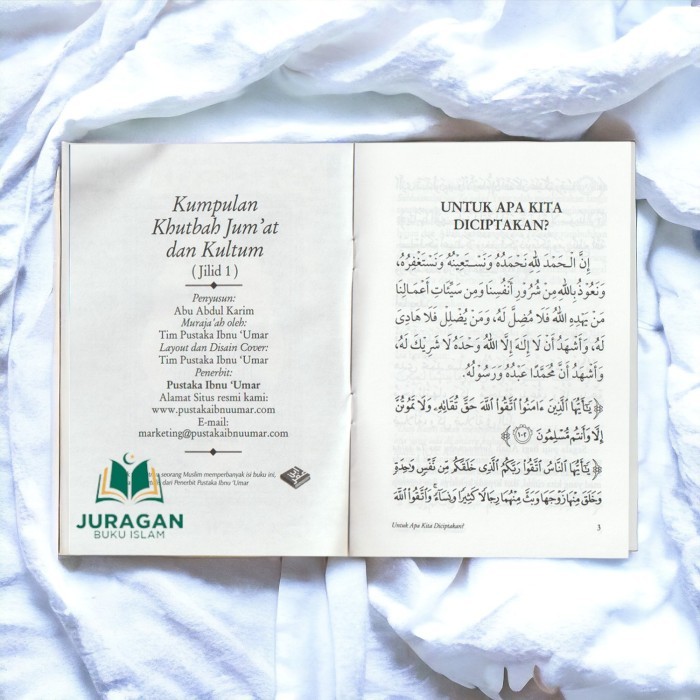 Kumpulan
Khutbah Jum'at
dan Kultum
( Jilid 1 )
Penyusun:
Abu Abdul Karim
Muraja'ah oleh:
Tim Pustaka Ibnu 'Umar
Layout dan Disain Cover:
Tim Pustaka Ibnu 'Umar
Penerbit:
Pustaka Ibnu 'Umar
Alamat Situs resmi kami:
www.pustakaibnuumar.com
E-mail:
marketing@pustakaibnuumar.com
seorang Muslim memperbanyak isi buku ini,
dari Penerbit Pustaka Ibnu 'Umar
JURAGAN
BUKU ISLAM
UNTUK APA KITA
DICIPTAKAN?
إِنَّ الْحَمْدَ لِلَّهِ نَحْمَدُهُ وَنَسْتَعِيْنُهُ وَنَسْتَغْفِرُهُ،
وَنَعُوْذُ بِاللهِ مِنْ شُرُوْرِ أَنْفُسِنَا وَمِنْ سَيِّئَاتِ أَعْمَالِنَا
مَنْ يَهْدِهِ اللهُ فَلَا مُضِلَّ لَهُ، وَمَنْ يُضْلِلْ فَلَا هَادِيَ
لَهُ، وَأَشْهَدُ أَنْ لَا إِلَهَ إِلَّا اللهُ وَحْدَهُ لَا شَرِيْكَ لَهُ،
وَأَشْهَدُ أَنَّ مُحَمَّدًا عَبْدُهُ وَرَسُوْلُهُ.
﴿ يَٰٓأَيُّهَا ٱلَّذِينَ ءَامَنُوا۟ ٱتَّقُوا۟ ٱللَّهَ حَقَّ تُقَاتِهِۦ وَلَا تَمُوتُنَّ
إِلَّا وَأَنتُم مُّسْلِمُونَ ١٠٢ ﴾
﴿ يَٰٓأَيُّهَا ٱلنَّاسُ ٱتَّقُوا۟ رَبَّكُمُ ٱلَّذِى خَلَقَكُم مِّن نَّفْسٍ وَٰحِدَةٍ
وَخَلَقَ مِنْهَا زَوْجَهَا وَبَثَّ مِنْهُمَا رِجَالًا كَثِيرًا وَنِسَآءً ۚ وَٱتَّقُوا۟ ٱللَّهَ
Untuk Apa Kita Diciptakan? 3